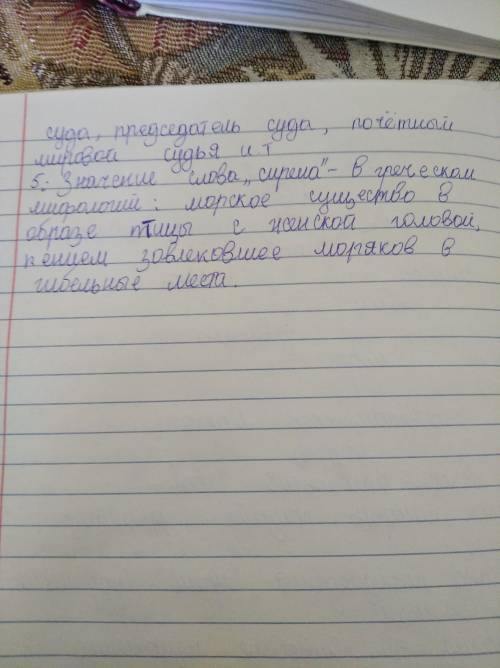 суда, председатель суда, почётный
мировой судья и т
5. Значение слова „сирена" - в греческом
мифологий: морское существо в
образе птицы с женской головой,
пением зовлековшее моряков в
гибельные места.